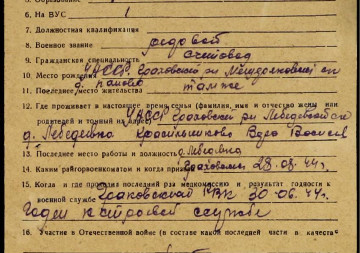 6. На ВУС 1
7. Должностная квалификация
8. Военное звание рядовой
9. Гражданская специальность счетовод
10. Место рождения УАССР Граховский р-н
11. Последнее место жительства там же
12. Где проживает в настоящее время семья (фамилия, имя и отчество жены или
родителей и точный их адрес) УАССР Граховский р-н
д. Лебедевка Красильникова Вера
13. Последнее место работы и должность д. Лебедевка
14. Каким райгорвоенкоматом и когда призван Граховским 28.08.44 г.
15. Когда и где проходил последний раз медкомиссию и результат годности к
военной службе Граховский РВК 30.06.44 г.
Годен к строевой службе
16. Участие в Отечественной войне (в составе какой последней части и в качестве